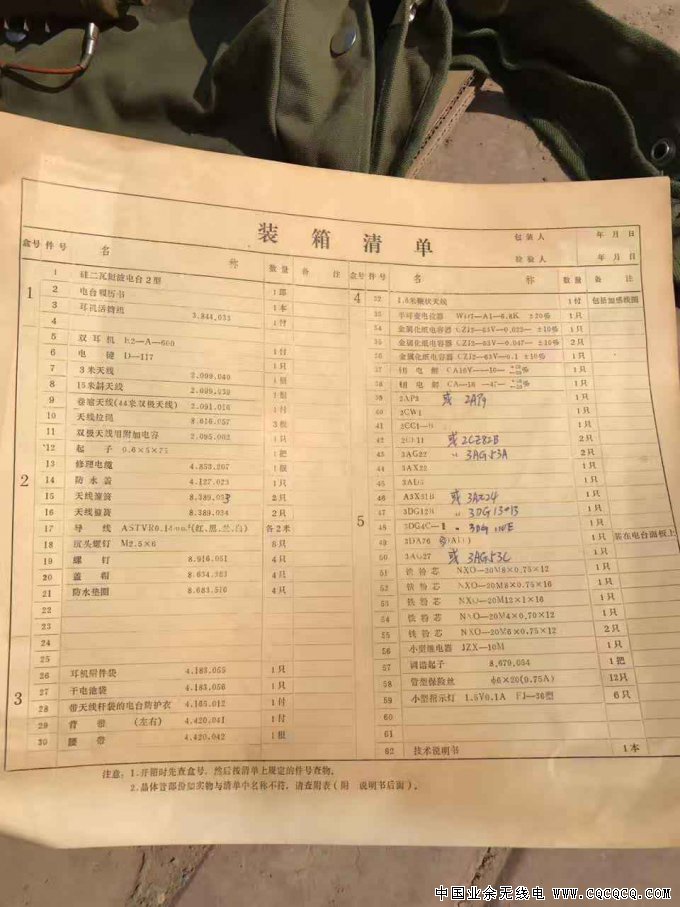 装箱清单
包装人 年 月 日
检验人 年 月 日
盒号 件号 名 称 数量 备 注
1
1 硅二瓦短波电台2型 1部
2 电台履历书 1本
3 耳机话筒组 3.844.033 1付
4
2
5 双耳机 E2-A-600 1付
6 电键 D-117 1只
7 3米天线 2.099.040 1根
8 15米斜天线 2.099.039 1根
9 卷缩天线(44米双极天线) 2.091.016 1付
10 天线拉绳 8.616.057 3根
11 双极天线用附加电容 2.095.002 1只
12 起子 0.6×5×75 1把
13 修理电缆 4.853.207 1根
14 防水盖 4.127.023 1只
15 天线撞簧 8.389.033 2只
16 天线撞簧 8.389.034 2只
17 导线 ASTVR0.14mm²(红、黑、兰、白) 各2米
18 沉头螺钉 M2.5×6 8只
19 螺钉 8.916.051 4只
20 盖帽 8.634.363 4只
21 防水垫圈 8.683.516 4只
22
23
24
25
3
26 耳机附件袋 4.183.055 1只
27 干电池袋 4.183.056 1只
28 带天线杆袋的电台防护衣 4.165.012 1付
29 背带 (左右) 4.420.041 1付
30 腰带 4.420.042 1根
盒号 件号 名 称 数量 备 注
4 32 1.6米鞭状天线 1付 包括加感线圈
5
33 半可变电位器 1只
34 金属化纸电容器 CZJ2-63V-0.022- ±10% 1只
35 金属化纸电容器 CZJ2-63V-0.047- ±10% 2只
36 金属化纸电容器 CZJ2-63V-0.1 ±10% 1只
37 钽电解 1只
38 钽电解 1只
39 2AP9 或 2AP9
40 2CW1
41 2CC1-B 1只
42 或 2CZ82B 2只
43 3AG22 〃 3AG53A
44 3AX22
45
46 A3X31B 或 3AX24 1只
47 3DG12B 〃 3DG130B 1只
48 3DG4C 〃 3DG110E 1只
49 3DA76 1只 装在电台面板上
50 3AG27 或 3AG53C 1只
51 铁粉芯 NXO-20M8×0.75×12 1只
52 铁粉芯 NXO-20M8×0.75×12 1只
53 铁粉芯 NXO-20M12×1×16 1只
54 铁粉芯 NXO-20M4×0.70×12 1只
55 铁粉芯 NXO-20M6×0.75×12 2只
56 小型继电器 JZX-10M 1只
57 调谐起子 8.679.054 1把
58 管型保险丝 ф6×20(0.75A) 12只
59 小型指示灯 1.5V0.1A FJ-36型 6只
60
61
62 技术说明书 1本
注意:1.开箱时先查盒号,然后按清单上规定的件号查物。
2.晶体管部份如实物与清单中名称不符,请查附表(附 说明书后面)。
中国业余无线电 www.CQCQCQ.com